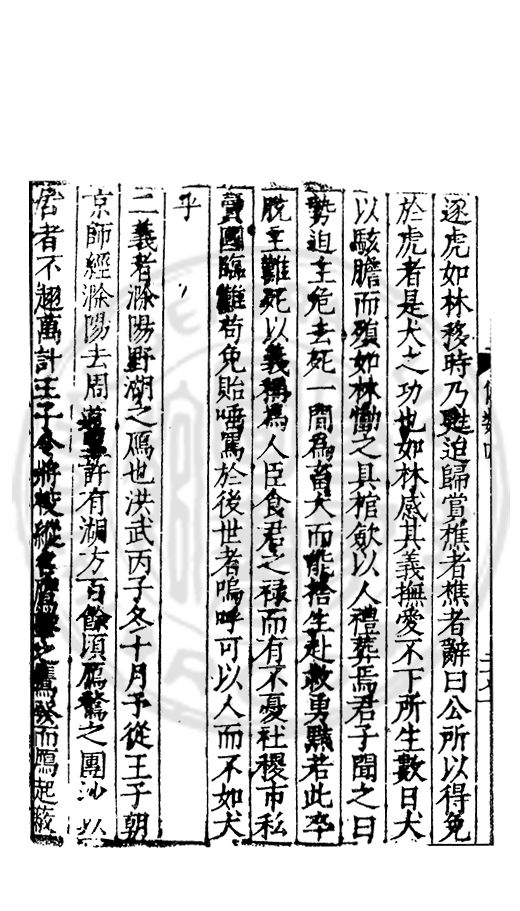 逐虎如林移時乃甦迫歸賞樵者樵者辭曰公所以得免
於虎者是犬之功也如林感其義撫愛不下所生數日犬
以駭膽而殞如林慟之具棺歛以人禮葬焉君子聞之曰
勢迫主危去死一間為畜犬而能捨生赴救勇黠若此卒
脫主難死以義稱為人臣食君之祿而有不憂社稷市私
賣國臨難苟免貽唾罵於後世者嗚呼可以人而不如犬
乎
二義者滁陽野湖之鴈也洪武丙子冬十月予從王子朝
京師經滁陽去周許有湖方百餘頃鴈鶩之團沙以
居者不趐萬計王子令將校縱名鷹之鷹發而鴈起蔽